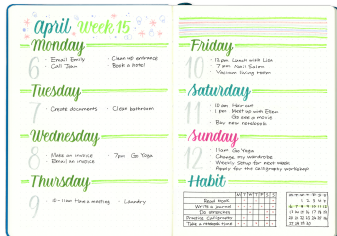 April Week 15
Monday
6
· Email Emily · Clean up entrance
· Call Tom · Book a hotel
Tuesday
7
· Create documents · Clean bathroom
Wednesday
8
· Make an invoice · 7pm Go Yoga
· Email an invoice
Thursday
9
· 10-11am Have a meeting · Laundry
Friday
10
· 12pm Lunch with Lisa
· 7am Nail Salon
· Vacuum living room
Saturday
11
· 10am Haircut
· 1pm Meet up with Ellen
Go see a movie
· Buy new notebooks
Sunday
12
· 11am Go Yoga
· Change my wardrobe
· Weekly Setup for next week
· Apply for the Calligraphy workshop
Habit
M T W T F S S
Read book
Write a journal
Do stretches
Practice Calligraphy
Take a relaxed time